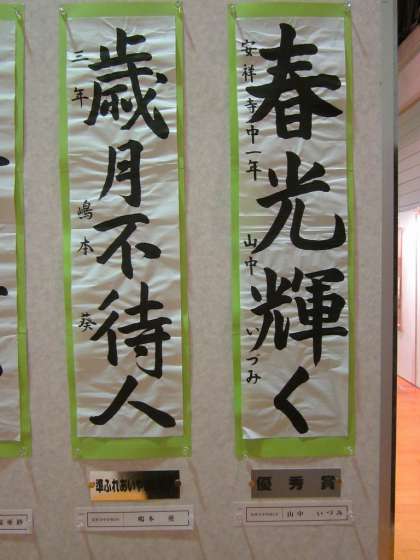 春光輝く
安祥寺中一年 山中いづみ
優秀賞
山中 いづみ
歳月不待人
三年 嶋本葵
準ふれあいや
嶋本 葵